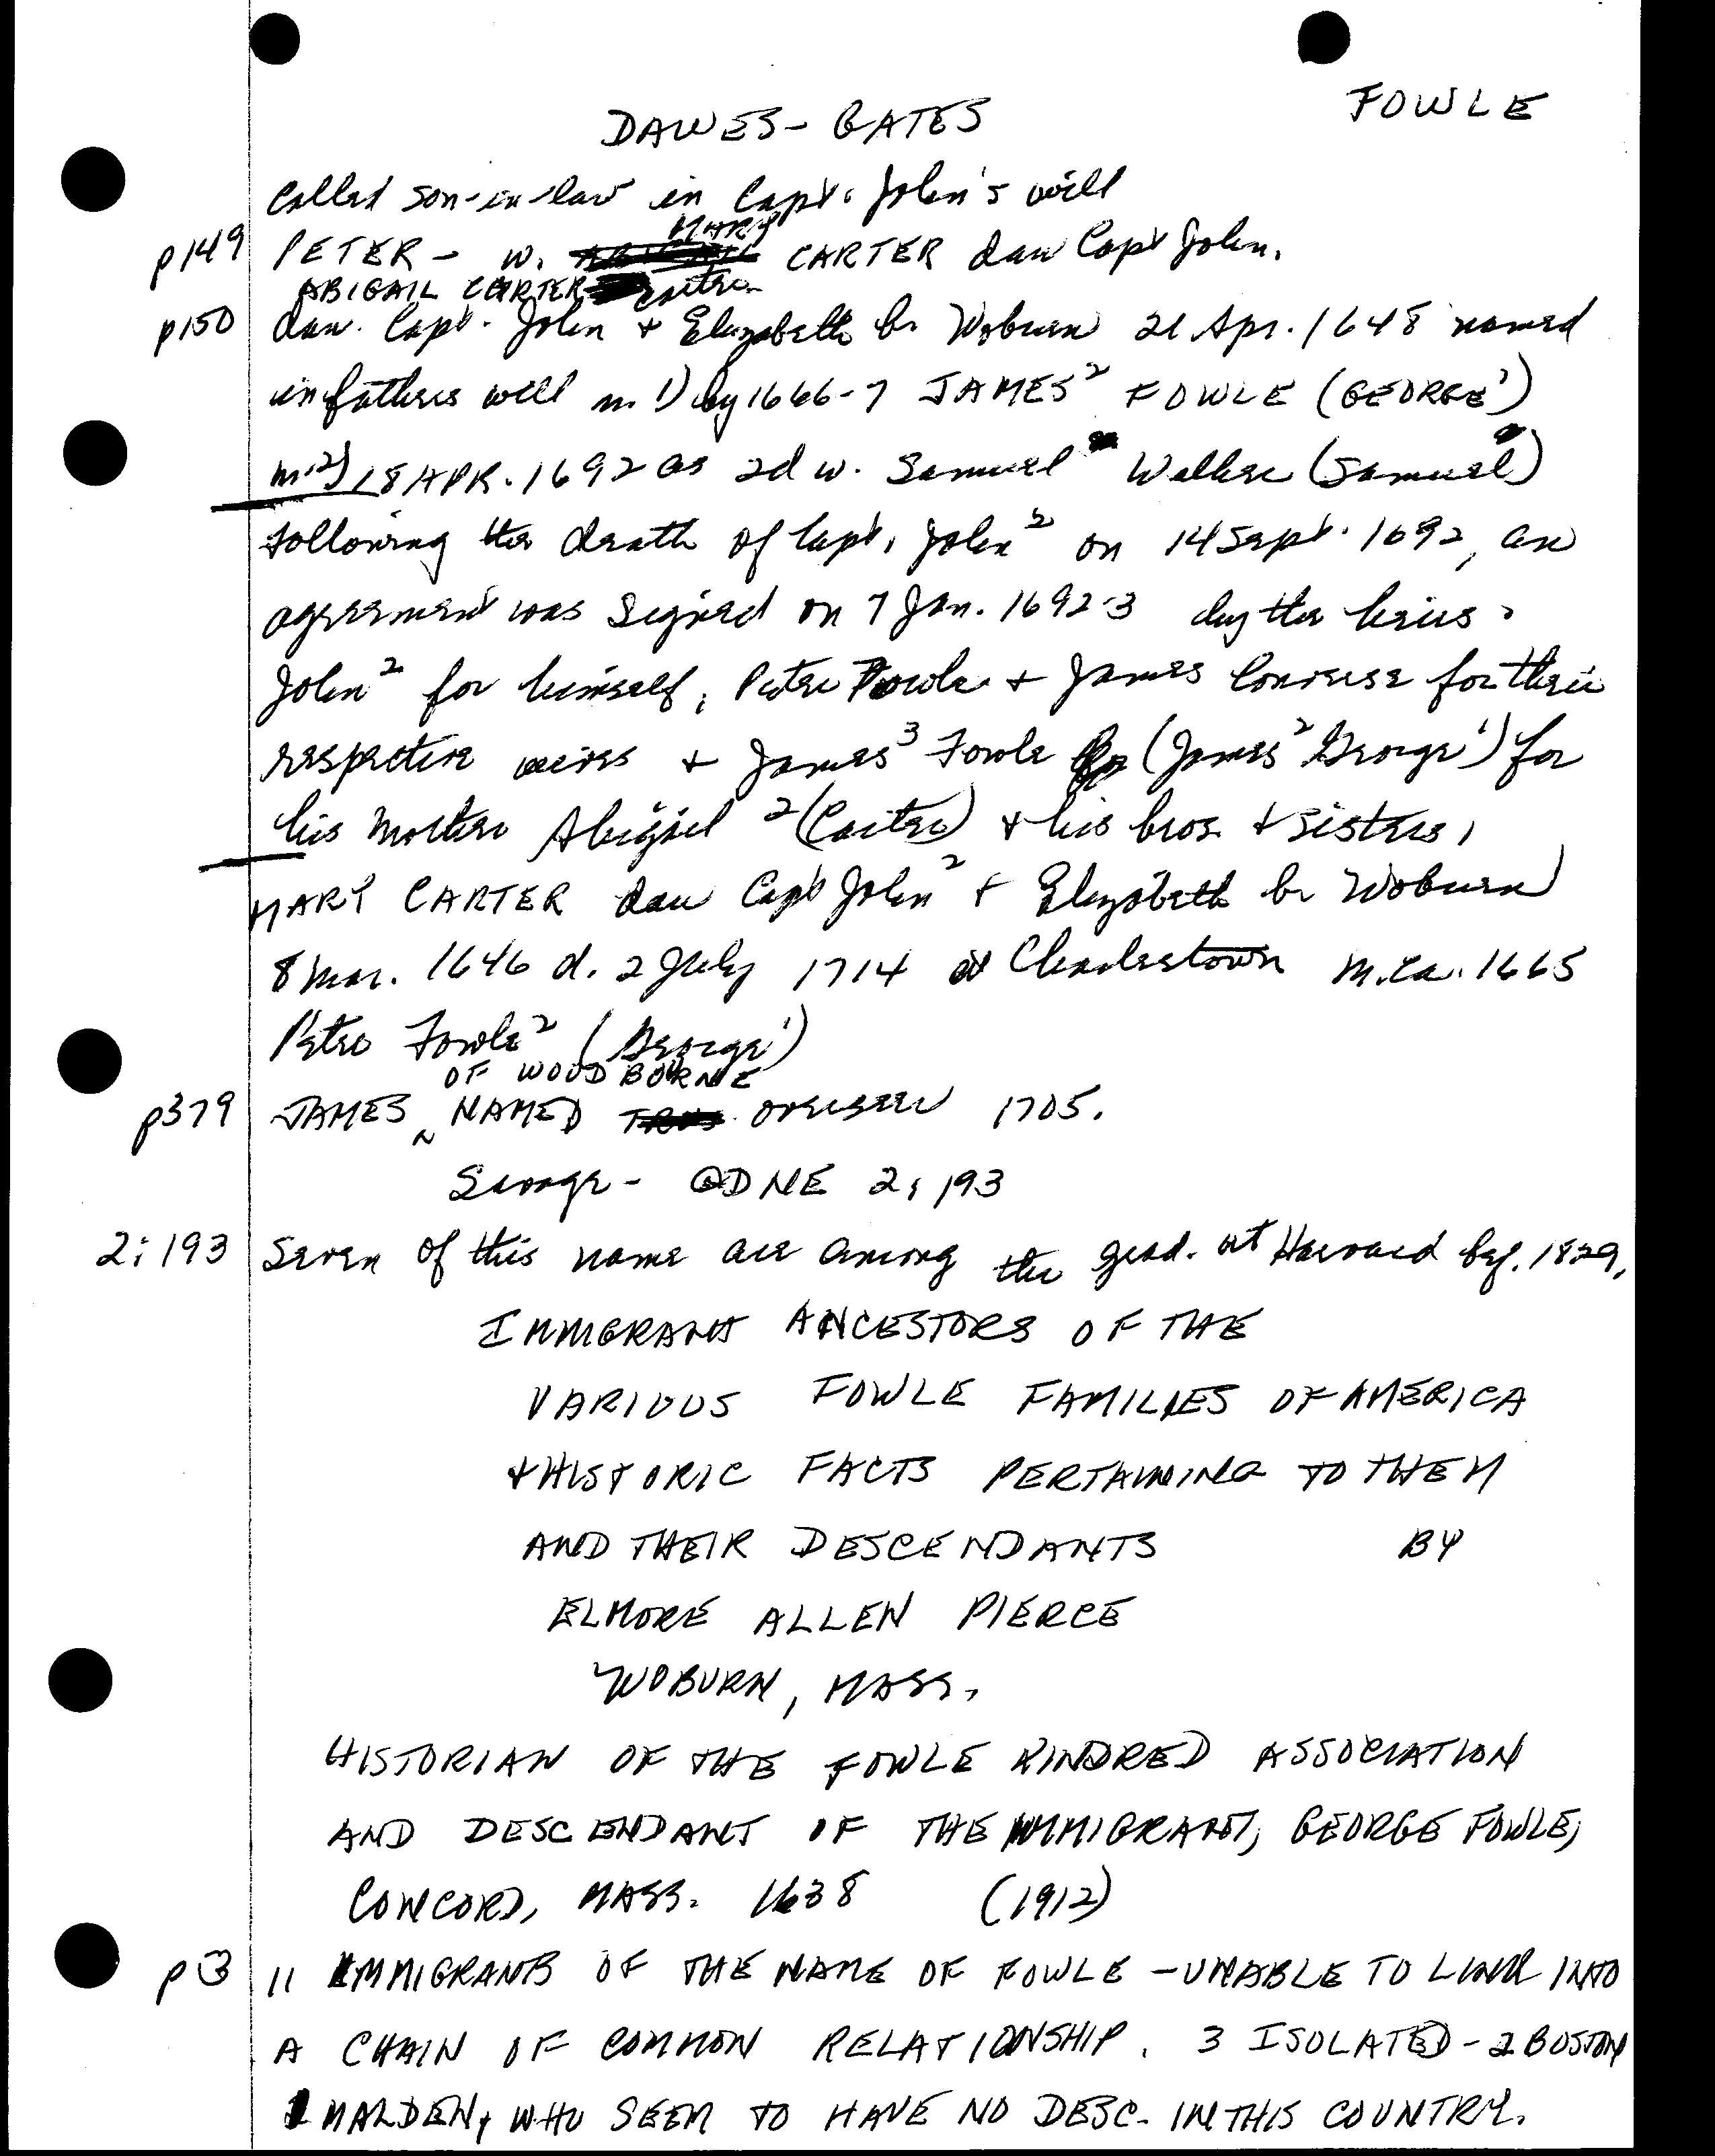 FOWLE
DAWES - GATES
called son-in-law in Capt. John's will
p149 PETER - w. MARY CARTER dau Capt John.
ABIGAIL CARTER
p150 dau. Capt. John + Elizabeth b. Woburn 21 Apr. 1648 named
in fathers will m. 1) by 1666-7 JAMES² FOWLE (GEORGE¹)
m. 2) 18 APR. 1692 as 2d w. Samuel Walker (Samuel)
following the death of Capt. John² on 14 Sept. 1692, an
agreement was signed on 7 Jan. 1692-3 by the heirs.
John² for himself, Peter Fowle + James Converse for their
respective wives + James³ Fowle (James² George¹) for
his mother Abigail ² (Carter) + his bros. + sisters,
MARY CARTER dau Capt John² + Elizabeth b. Woburn
8 Mar. 1646 d. 2 July 1714 at Charlestown m. ca. 1665
Peter Fowle² (George¹)
OF WOODBOURNE
p379 JAMES ^ NAMED overseer 1705.
Savage - GDNE 2: 193
2: 193 Seven of this name are among the grad. at Harvard bef. 1829,
IMMIGRANT ANCESTORS OF THE
VARIOUS FOWLE FAMILIES OF AMERICA
+ HISTORIC FACTS PERTAINING TO THEM
AND THEIR DESCENDANTS BY
ELMORE ALLEN PIERCE
WOBURN, MASS.
HISTORIAN OF THE FOWLE KINDRED ASSOCIATION
AND DESCENDANT OF THE IMMIGRANT, GEORGE FOWLE,
CONCORD, MASS. 1638 (1912)
p3 11 IMMIGRANTS OF THE NAME OF FOWLE - UNABLE TO LINK INTO
A CHAIN OF COMMON RELATIONSHIP. 3 ISOLATED - 2 BOSTON
1 MALDEN, WHO SEEM TO HAVE NO DESC. IN THIS COUNTRY.